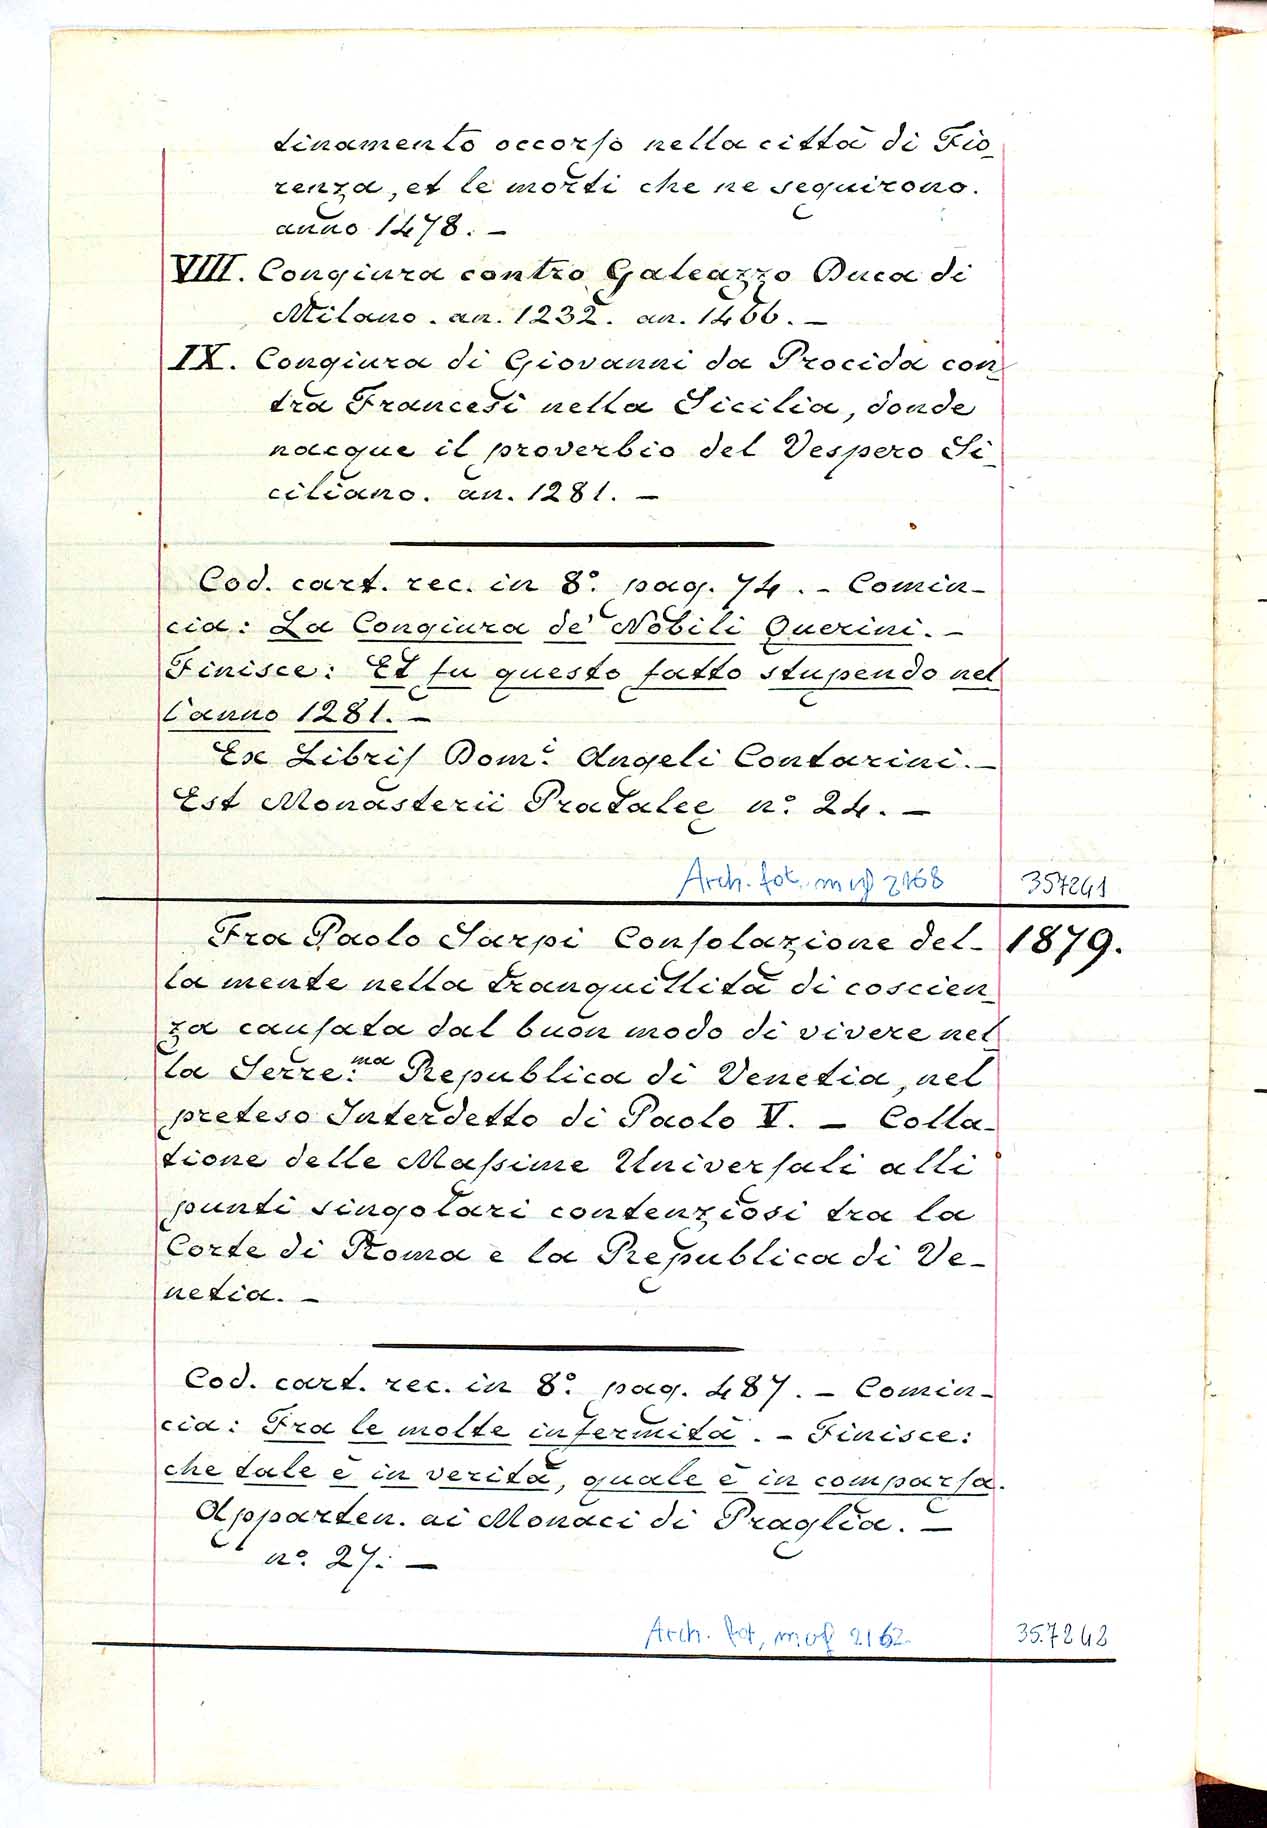 tinamento occorso nella città di Fio_
renza, et le morti che ne seguirono.
anno 1478. –
VIII. Congiura contro Galeazzo Duca di
Milano. an. 1232. an. 1466. –
IX. Congiura di Giovanni da Procida con_
tra Francesi nella Sicilia, donde
nacque il proverbio del Vespero Si_
ciliano. an. 1281. –
Cod. cart. rec. in 8.° pag. 74. – Comin-
cia: La Congiura de' Nobili Querini. –
Finisce: Et fu questo fatto stupendo nel
l'anno 1281. –
Ex Libris Dom.i Angeli Contarini. –
Est Monasterii Pratalee n.° 24. –
Arch. fot. mcf 2168 357241
Fra Paolo Sarpi Consolazione del- 1879.
la mente nella tranquillità di coscien_
za causata dal buon modo di vivere nel_
la Serre.ma Republica di Venetia, nel
preteso Interdetto di Paolo V. – Colla-
tione delle Massime Universali alli
punti singolari contenziosi tra la
Corte di Roma e la Republica di Ve-
netia. –
Cod. cart. rec. in 8.° pag. 487. – Comin-
cia: Fra le molte infermità. – Finisce:
che tale è in verità, quale è in comparsa.
Apparten. ai Monaci di Praglia. –
n.° 27: –
Arch. fot, mcf 2162 357242